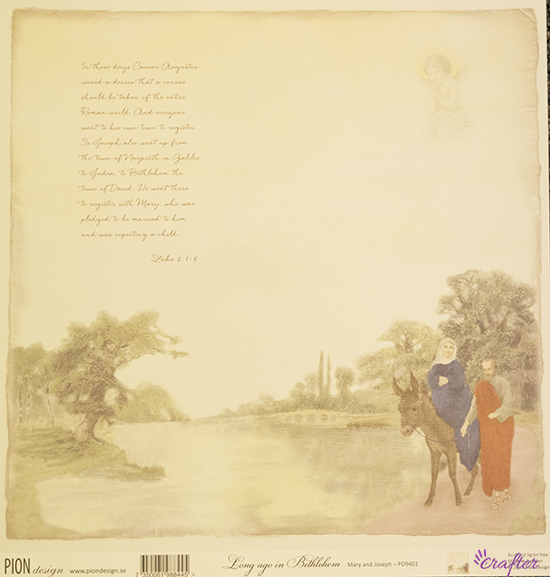 In those days Caesar Augustus
issued a decree that a census
should be taken of the entire
Roman world. And everyone
went to his own town to register.
So Joseph also went up from
the town of Nazareth in Galilee
to Judea, to Bethlehem the
town of David. He went there
to register with Mary, who was
pledged to be married to him
and was expecting a child.
Luke 2:1-5
PION design www.piondesign.se 7 350061 988445 Long ago in Bethlehem Mary and Joseph – PD9401
Acid and lignin free
crafter